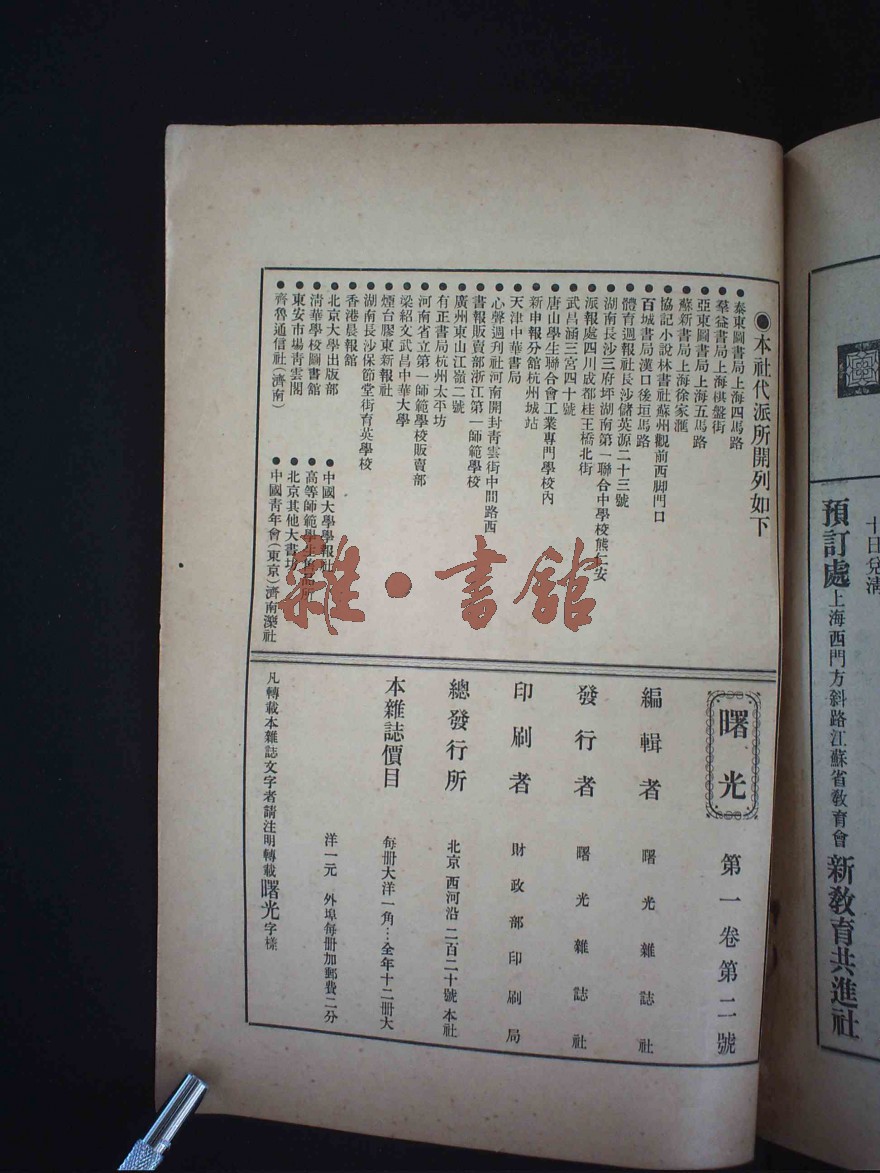 ●本社代派所開列如下
●泰東圖書局上海四馬路
●羣益書局上海棋盤街
●亞東圖書局上海五馬路
●蘇新書局上海徐家滙
●協記小說林書社蘇州觀前西脚門口
●百城書局漢口後垣馬路
●體育週報社長沙儲英源二十三號
●湖南長沙三府坪湖南第一聯合中學校熊仁安
●派報處四川成都桂王橋北街
●武昌涵三宮四十號
●唐山學生聯合會工業專門學校內
●新申報分館杭州城站
●天津中華書局
●心聲週刋社河南開封靑雲街中間路西
●書報販賣部浙江第一師範學校
●廣州東山江嶺二號
●有正書局杭州太平坊
●河南省立第一師範學校販賣部
●梁紹文武昌中華大學
●煙台膠東新報社
●湖南長沙保節堂街育英學校
●香港晨報館
●北京大學出版部
●中國大學學報社
●淸華學校圖書館
●高等師範學生
●東安市場靑雲閣
●北京其他大書坊
●齊魯通信社(濟南)
●中國靑年會(東京)濟南濼社
曙光
第一卷第二號
編輯者 曙光雜誌社
發行者 曙光雜誌社
印刷者 財政部印刷局
總發行所 北京西河沿二百二十號本社
本雜誌價目 每冊大洋一角…全年十二冊大
洋一元 外埠每冊加郵費二分
凡轉載本雜誌文字者請注明轉載曙光字樣
十日兌淸
預訂處上海西門方斜路江蘇省敎育會新敎育共進社
雜·書館